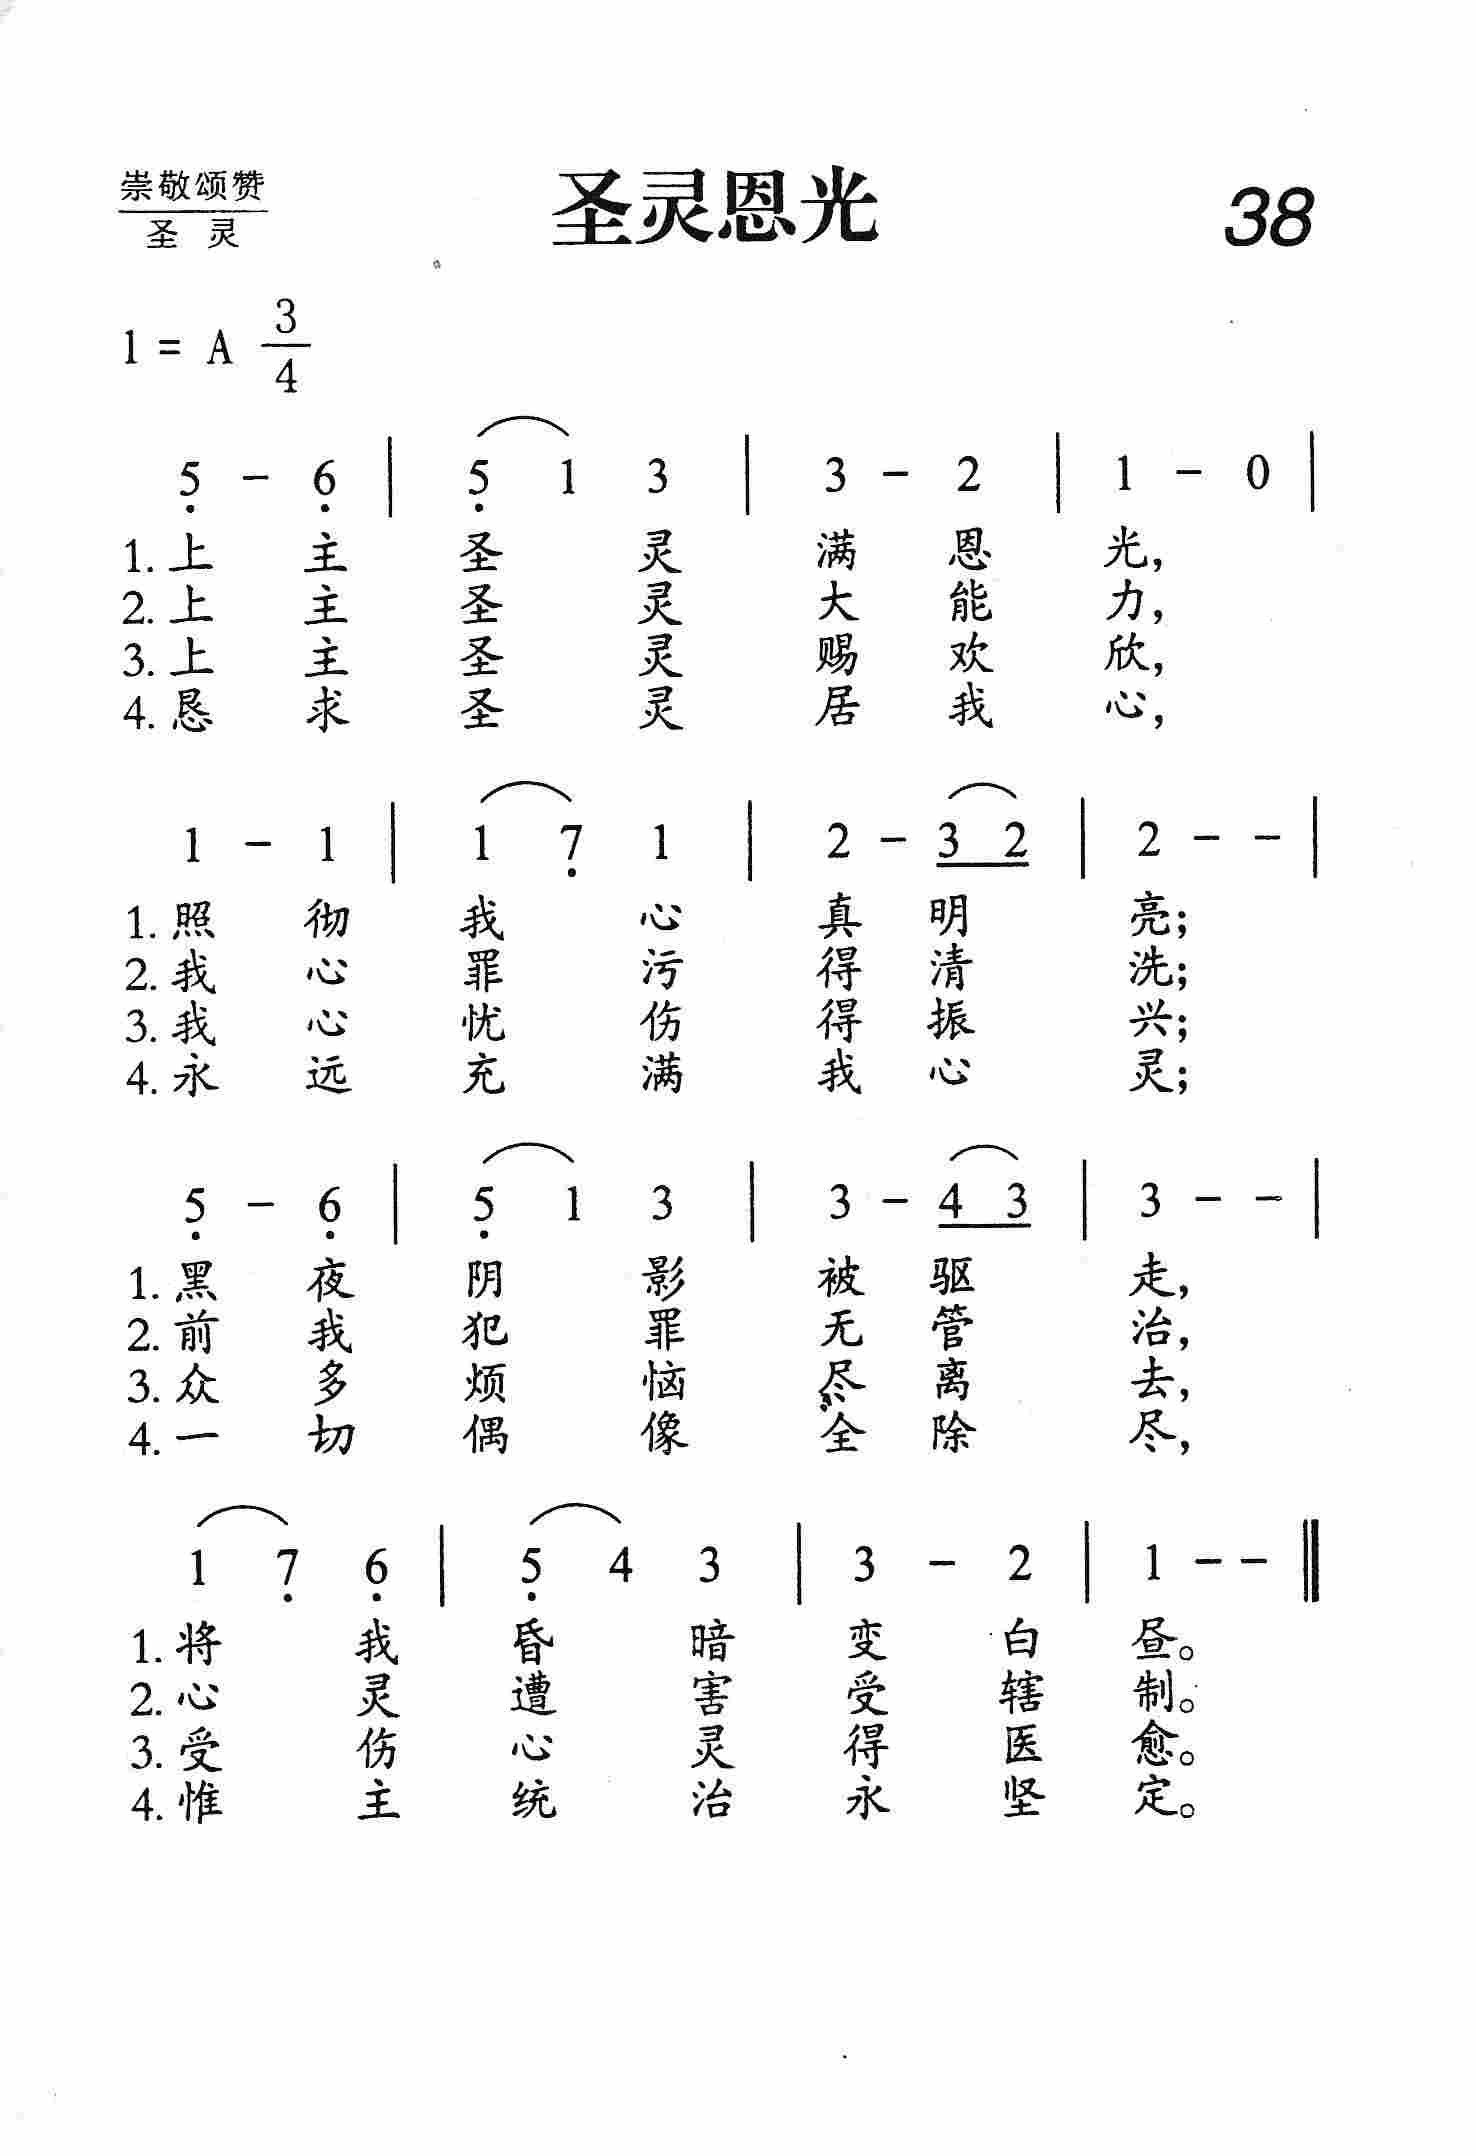 崇敬颂赞
圣 灵
圣灵恩光
38
1 = A 3/4
5̣ - 6̣ | 5̣ 1 3 | 3 - 2 | 1 - 0 |
1. 上 主 圣 灵 满 恩 光,
2. 上 主 圣 灵 大 能 力,
3. 上 主 圣 灵 赐 欢 欣,
4. 恳 求 圣 灵 居 我 心,
1 - 1 | 1 7̣ 1 | 2 - 3 2 | 2 - - |
1. 照 彻 我 心 真 明 亮;
2. 我 心 罪 污 得 清 洗;
3. 我 心 忧 伤 得 振 兴;
4. 永 远 充 满 我 心 灵;
5̣ - 6̣ | 5̣ 1 3 | 3 - 4 3 | 3 - - |
1. 黑 夜 阴 影 被 驱 走,
2. 前 我 犯 罪 无 管 治,
3. 众 多 烦 恼 尽 离 去,
4. 一 切 偶 像 全 除 尽,
1 7̣ 6̣ | 5̣ 4 3 | 3 - 2 | 1 - - ‖
1. 将 我 昏 暗 变 白 昼。
2. 心 灵 遭 害 受 辖 制。
3. 受 伤 心 灵 得 医 愈。
4. 惟 主 统 治 永 坚 定。